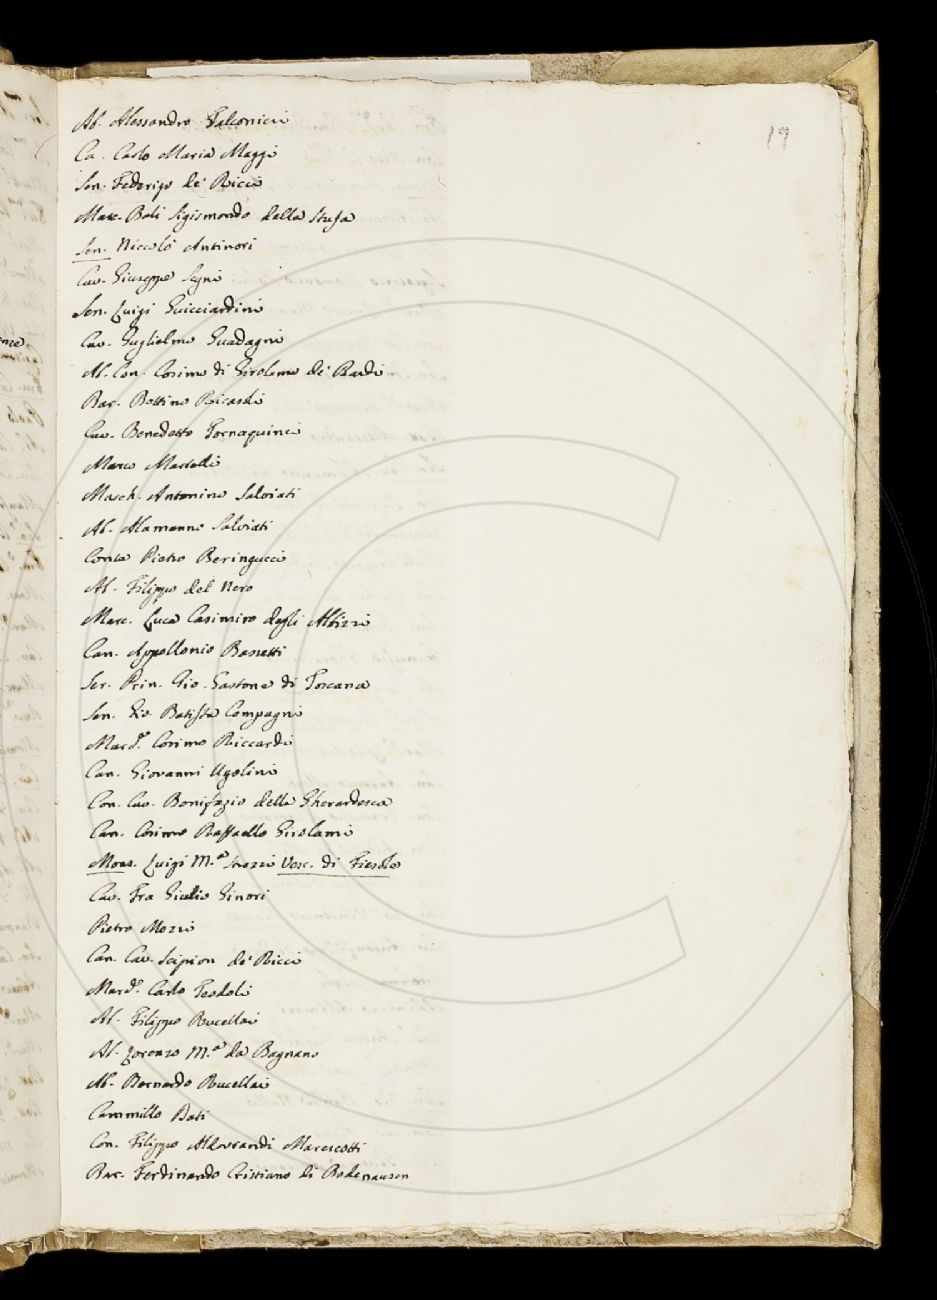 19
Ab. Alessandro Falconieri
Ca. Carlo Maria Maggi
Sen. Federigo de' Ricci
Marc. Bali Sigismondo della Stufa
Sen. Niccolò Antinori
Cav. Giuseppe Segni
Sen. Luigi Guicciardini
Cav. Guglielmo Guadagni
Ab. Con. Cosimo di Girolamo de' Bardi
Bar. Bettino Ricasoli
Cav. Benedetto Tornaquinci
Marco Martelli
March. Antonino Salviati
Ab. Alamanno Salviati
Conte Pietro Beringucci
Ab. Filippo del Nero
Marc. Luca Casimiro degli Albizzi
Can. Appollonio Bassetti
Ser. Prin. Gio. Gastone di Toscana
Sen. Gio. Batista Compagni
Marc. Cosimo Riccardi
Can. Giovanni Ugolini
Con. Cav. Bonifazio della Gherardesca
Can. Cosimo Raffaello Girolami
Mons. Luigi M.ª Strozzi Vesc. di Fiesole
Cav. Fra Giulio Ginori
Pietro Mozzi
Can. Cav. Scipion de' Ricci
Marc. Carlo Teodoli
Ab. Filippo Rucellai
Ab. Lorenzo M.ª da Bagnano
Ab. Bernardo Rucellai
Cammillo Dati
Con. Filippo Aldovrandi Marescotti
Bar. Ferdinando Cristiano di Bodenausen